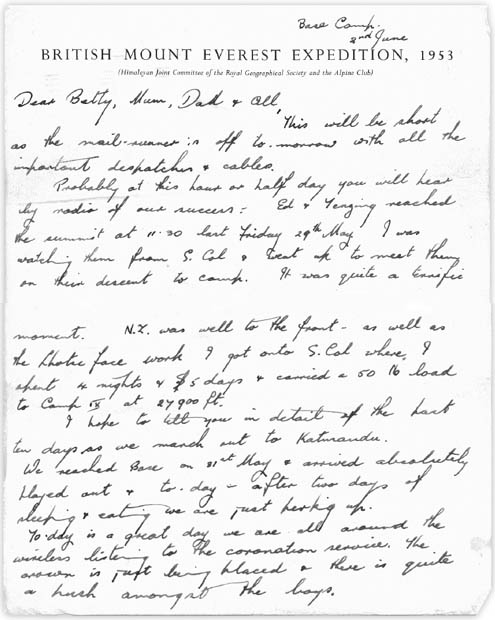 Base Camp.
2nd June
BRITISH MOUNT EVEREST EXPEDITION, 1953
(Himalayan Joint Committee of the Royal Geographical Society and the Alpine Club)
Dear Betty, Mum, Dad & All
This will be short
as the mail-runner is off to-morrow with all the
important despatches & cables.
Probably at this hour or half day you will hear
by radio of our success:- Ed & Tenzing reached
the summit at 11.30 last Friday 29th May. I was
watching them from S. Col & went up to meet them
on their descent to camp. It was quite a terrific
moment. N.Z. was well to the front - as well as
the Lhotse face work I got onto S. Col where I
spent 4 nights & 5 days & carried a 50 lb load
to Camp IX at 27900 ft.
I hope to tell you in detail of the last
ten days as we march out to Katmandu.
We reached Base on 31st May & arrived absolutely
played out & to-day - after two days of
sleeping & eating we are just perking up.
To-day is a great day we are all around the
wireless listening to the coronation service. The
crown is just being placed & there is quite
a hush amongst the boys.